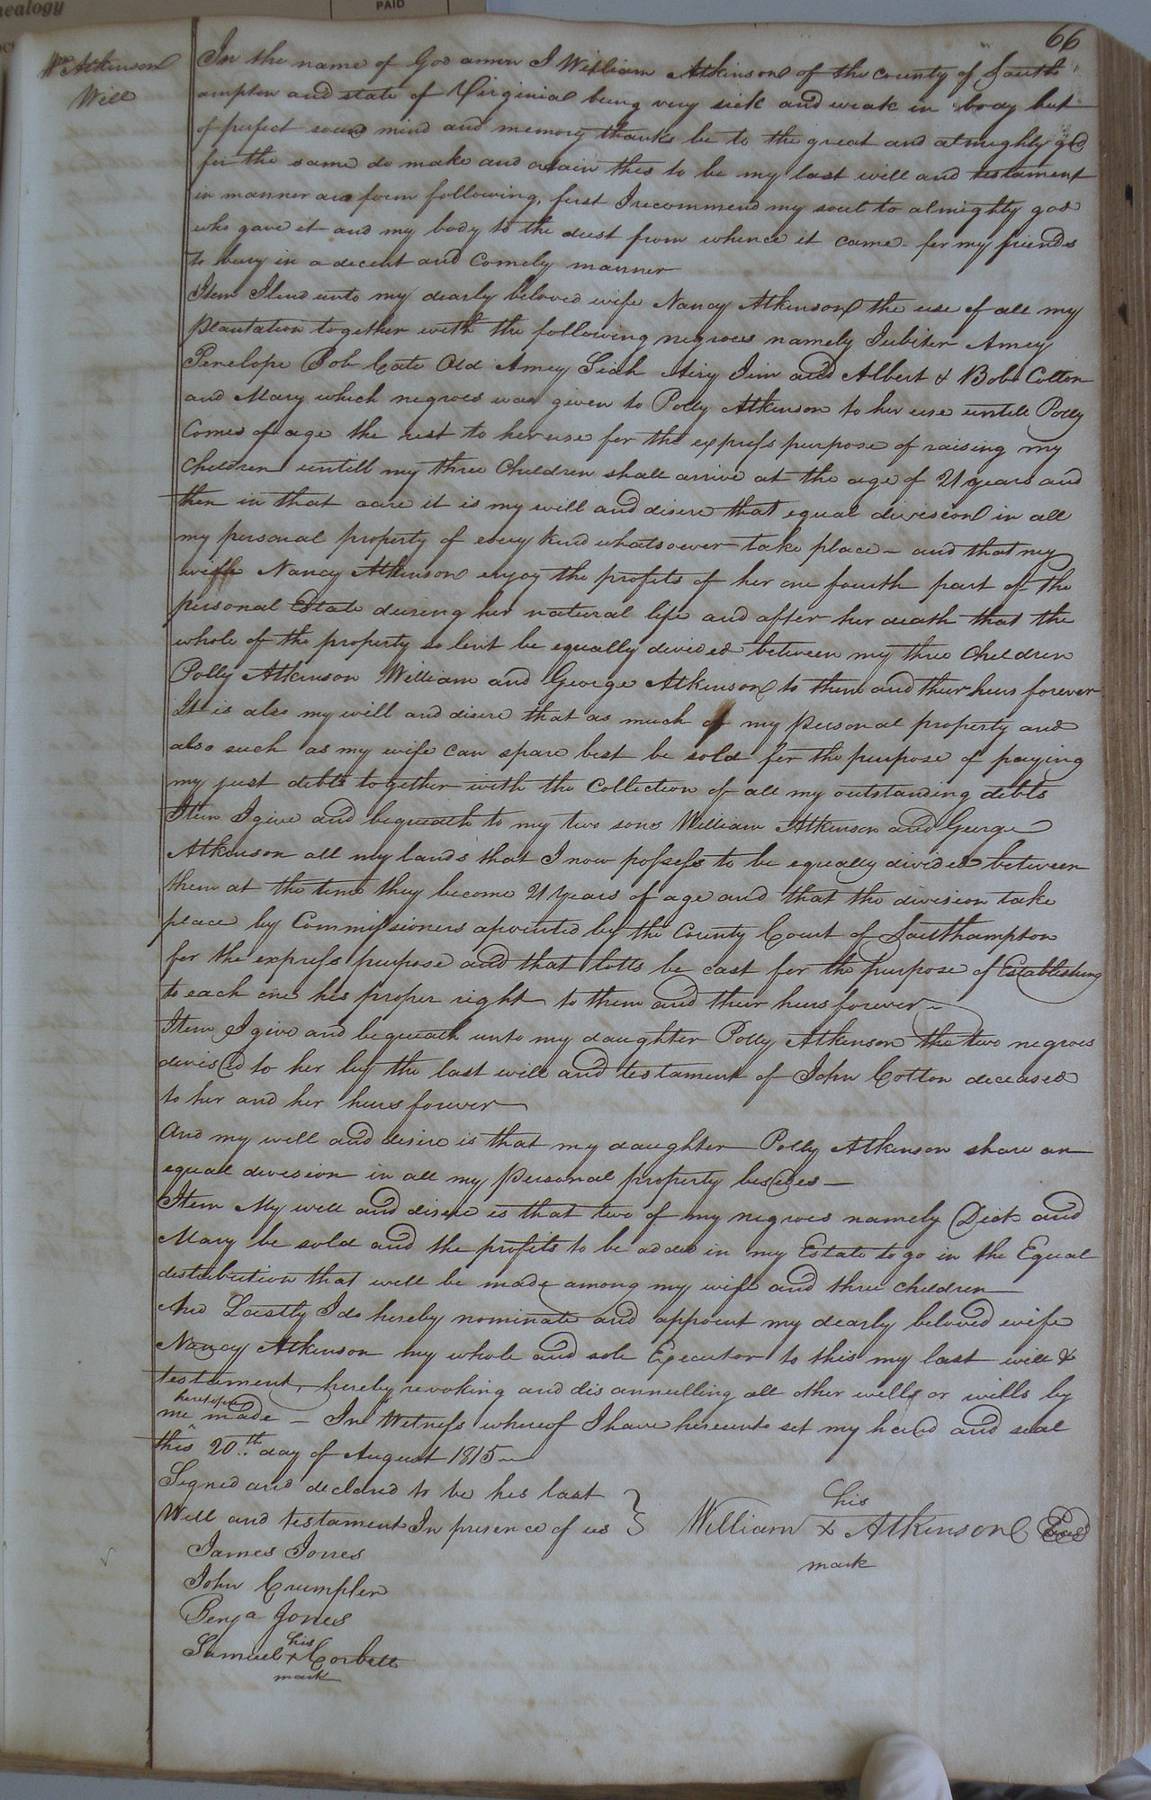 nealogy
PAID
66
Wm Atkinson
Will
In the name of God amen I William Atkinson of the county of South
ampton and state of Virginia being very sick and weak in body but
of perfect sound mind and memory thanks be to the great and almighty god
for the same do make and ordain this to be my last will and testament
in manner and form following, first I recommend my soul to almighty god
who gave it and my body to the dust from whence it came for my friends
to bury in a decent and comely manner
Item I lend unto my dearly beloved wife Nancy Atkinson the use of all my
plantation together with the following negroes namely Jubiter Amey
Penelope Bob Cate Old Amey Siah Airy Jim and Albert & Bob Cotton
and Mary which negroes was given to Polly Atkinson to her use untill Polly
Comes of age the rest to her use for the express purpose of raising my
Children untill my three Children shall arrive at the age of 21 years and
then in that case it is my will and disire that equal division in all
my personal property of every kind whatsoever take place – and that my
wife Nancy Atkinson enjoy the profits of her one fourth part of the
personal Estate during her natural life and after her death that the
whole of the property so lent be equally divided between my three Children
Polly Atkinson William and George Atkinson to them and their heirs forever
It is also my will and disire that as much of my personal property and
also such as my wife can spare best be sold for the purpose of paying
my just debts together with the Collection of all my outstanding debts
Item I give and bequeath to my two sons William Atkinson and George
Atkinson all my lands that I now possess to be equally divided between
them at the time they become 21 years of age and that the division take
place by Commissioners apointed by the County Court of Southampton
for the express purpose and that lotts be cast for the purpose of Establishing
to each one his proper right to them and their heirs forever –
Item I give and bequeath unto my daughter Polly Atkinson the two negroes
devised to her by the last will and testament of John Cotton deceased
to her and her heirs forever
And my will and desire is that my daughter Polly Atkinson share an
equal division in all my personal property besides –
Item My will and disire is that two of my negroes namely Dick and
Mary be sold and the profits to be added in my Estate to go in the Equal
distribution that will be made among my wife and three children
And Lastly I do hereby nominate and appoint my dearly beloved wife
Nancy Atkinson my whole and sole Executor to this my last will &
testament, hereby revoking and disannulling all other wills or wills by
me heretofore made – In Witness whereof I have hereunto set my hand and seal
this 20th day of August 1815
Signed and declared to be his last
Will and testament In presence of us } William his x mark Atkinson Seal
James Jones
John Crumpler
Benja Jones
Samuel his x mark Corbett